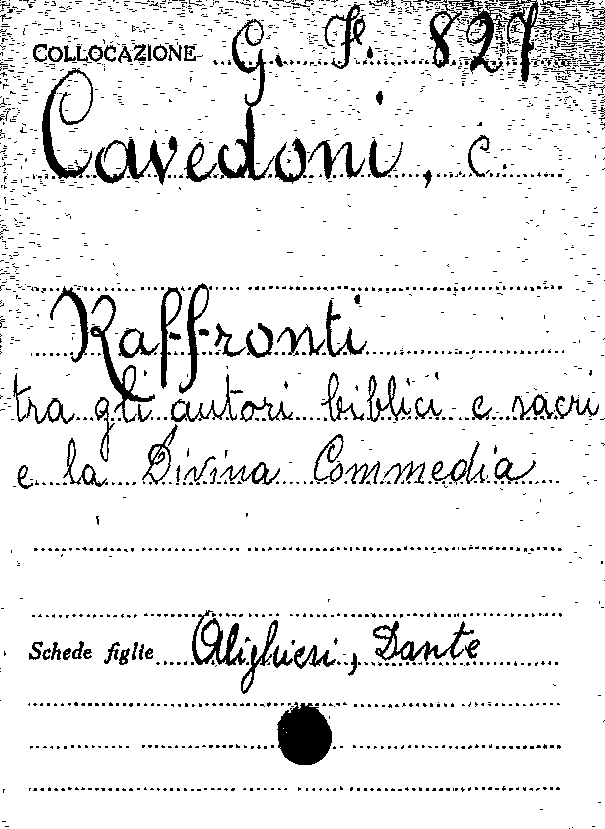 COLLOCAZIONE G. F. 827
Cavedoni, C.
Raffronti
tra gli autori biblici e sacri
e la Divina Commedia
Schede figlie Alighieri, Dante